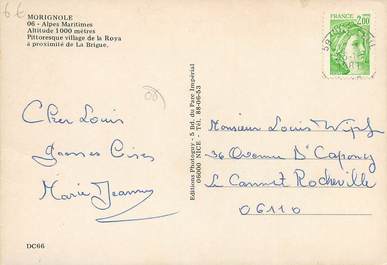 6€
MORIGNOLE
06 - Alpes Maritimes
Altitude 1000 mètres
Pittoresque village de la Roya
à proximité de La Brigue.
Cher Louis
Grosses Bises
Marie Jeanne
DC66
Editions Photoguy - 5 Bd. du Parc Impérial
06000 NICE - Tél. 88-06-53
FRANCE
2,00
Monsieur Louis
36 Avenue D'
Le Cannet Rocheville
06110